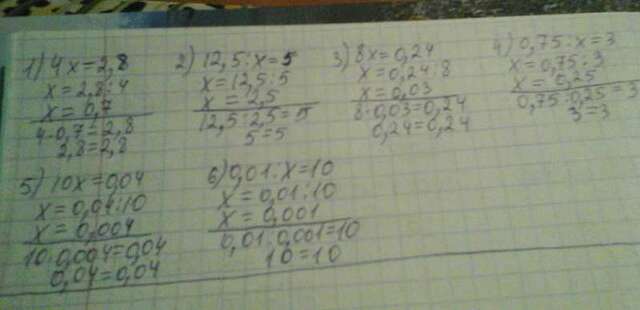 1) 4x=2,8
x=2,8:4
x=0,7
4·0,7=2,8
2,8=2,8
2) 12,5:x=5
x=12,5:5
x=2,5
12,5:2,5=5
5=5
3) 8x=0,24
x=0,24:8
x=0,03
8·0,03=0,24
0,24=0,24
4) 0,75:x=3
x=0,75:3
x=0,25
0,75:0,25=3
3=3
5) 10x=0,04
x=0,04:10
x=0,004
10·0,004=0,04
0,04=0,04
6) 0,01:x=10
x=0,01:10
x=0,001
0,01:0,001=10
10=10